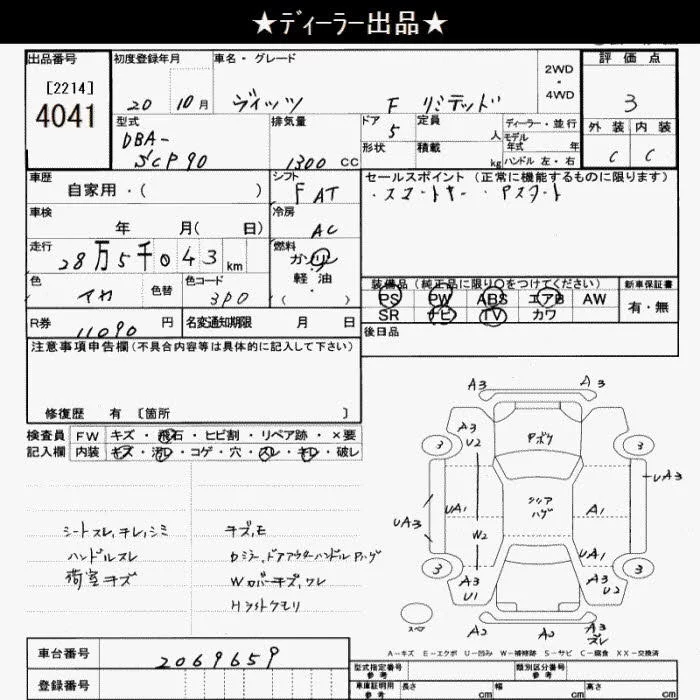 ★ディーラー出品★
出品番号 初度登録年月 車名・グレード 2WD・4WD 評価点
[2214]
4041
20 10月 ヴィッツ F リミテッド 3
型式 排気量 ドア 定員 ディーラー・並行 外装 内装
DBA-
SCP90 1300 CC 5 人 モデル年式 年 C C
形状 積載 kg ハンドル 左・右
車歴 シフト セールスポイント (正常に機能するものに限ります)
自家用・( ) F AT ・スマートキー ・Pスタート
車検 冷房
年 月( 日) AC
走行 燃料
28万5千043 km ガソリン
軽油
( )
色 色替 色コード 装備品 (純正品に限り○をつけてください) 新車保証書
アカ 3P0 PS PW ABS エアB AW 有・無
R券 11090 円 名変通知期限 月 日 SR ナビ TV カワ
後日品
注意事項申告欄 (不具合内容等は具体的に記入して下さい)
修復歴 有 〔箇所 〕
検査員 FW キズ・飛石・ヒビ割・リペア跡・×要
記入欄 内装 キズ・汚レ・コゲ・穴・スレ・キレ・破レ
シートスレ,チレ,シミ キズ,モ
ハンドルスレ カミラー,ドアアウターハンドルPハゲ
荷室キズ Wカバーキズ,ワレ
Hライトクモリ
A3 A3
A3
U2 Pボケ
3 3
クリアハゲ
UA1 A1 UA3
UA3 W2 UA1
3 3
A3
U1 A3
U2
スペア A2 A2 A3
スレ
A-キズ E-エクボ U-凹み W-補修跡 S-サビ C-腐食 XX-交換済
車台番号 2069659
型式指定番号 参考 類別区分番号 参考
登録番号 車庫証明用 参考 長さ cm 幅 cm 高さ cm